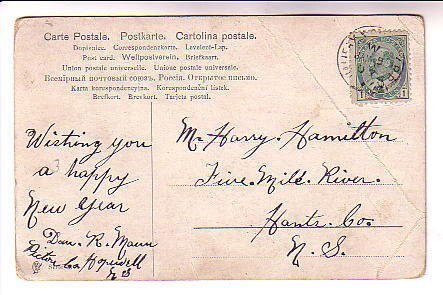 Carte Postale. Postkarte. Cartolina postale.
Dopisnice. Correspondenzkarte. Levelezö-Lap.
Post card. Weltpostverein. Briefkaart.
Union postale universelle. Unione postale universale.
Всемірный почтовый союзъ. Россія. Открытое письмо.
Karta korespondencyjna. Korespondenční lístek.
Brefkort. Brevkort. Tarjeta postal.
Wishing you
a happy
New Year
Dan. R. Mann
Pictou Co. Hopewell
N S
Mr Harry Hamilton
Five Mile River.
Hants. Co.
N. S.